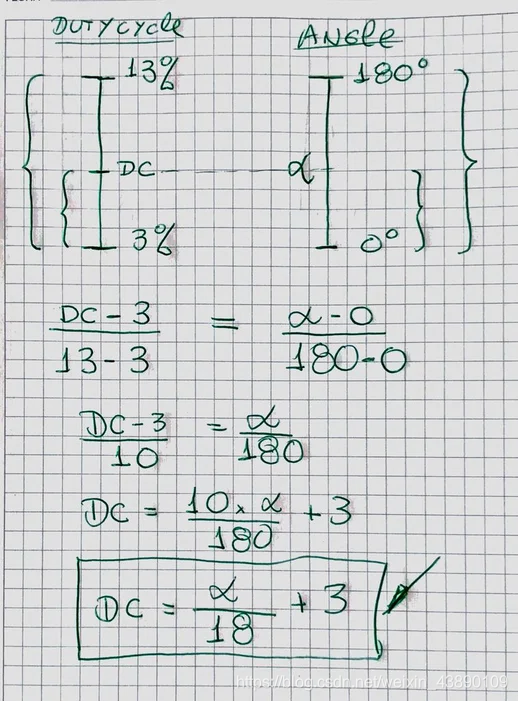 DUTYCYCLE ANGLE
13% 180°
DC α
3% 0°
DC - 3 = α - 0
13 - 3 180 - 0
DC - 3 = α
10 180
DC = 10 × α + 3
180
DC = α + 3
18
https://blog.csdn.net/weixin_43890109